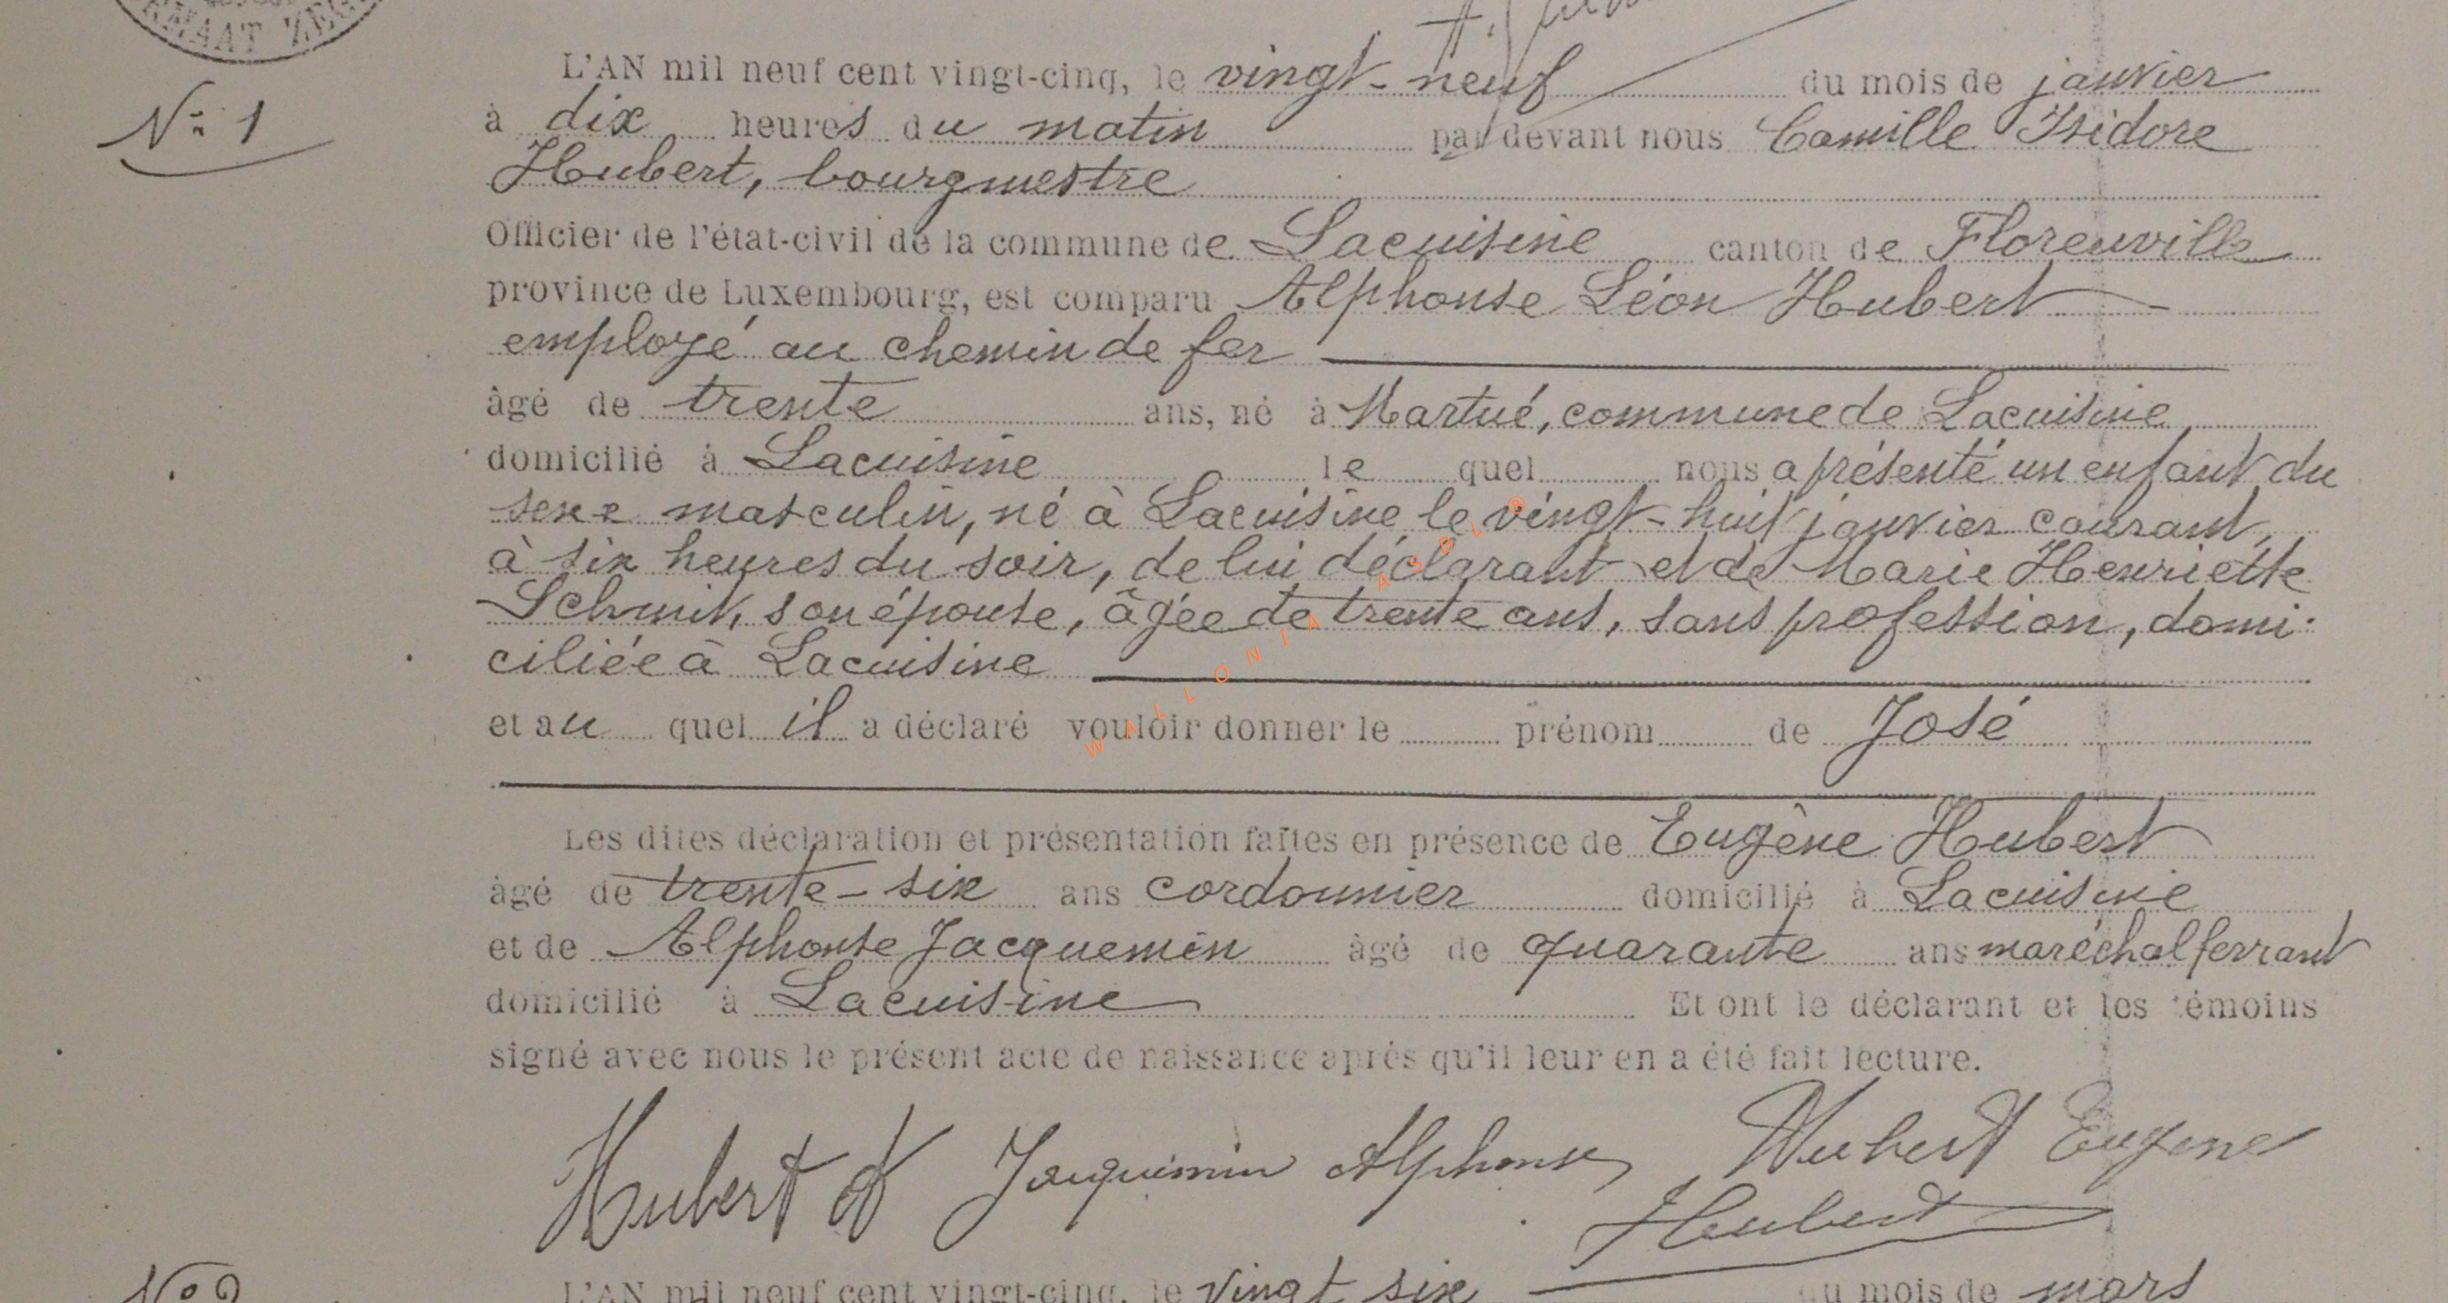 RMAAT ZEG
L'AN mil neuf cent vingt-cinq, le vingt-neuf du mois de janvier
Nº 1
à dix heures du matin par devant nous Camille Isidore
Hubert, bourgmestre
Officier de l'état-civil de la commune de Lacuisine canton de Florenville
province de Luxembourg, est comparu Alphonse Léon Hubert
employé au chemin de fer
âgé de trente ans, né à Martué, commune de Lacuisine
domicilié à Lacuisine le quel nous a présenté un enfant du
sexe masculin, né à Lacuisine le vingt-huit janvier courant,
à six heures du soir, de lui déclarant et de Marie Henriette
Schmit, son épouse, âgée de trente ans, sans profession, domi-
ciliée à Lacuisine
et au quel il a déclaré vouloir donner le prénom de José
WALLONIA ASBL
Les dites déclaration et présentation faites en présence de Eugène Hubert
âgé de trente-six ans cordonnier domicilié à Lacuisine
et de Alphonse Jacquemin âgé de quarante ans maréchal ferrant
domicilié à Lacuisine Et ont le déclarant et les témoins
signé avec nous le présent acte de naissance après qu'il leur en a été fait lecture.
Hubert A Jacquemin Alphonse Hubert Eugène
Hubert
Nº 2
L'AN mil neuf cent vingt-cinq, le vingt six du mois de mars